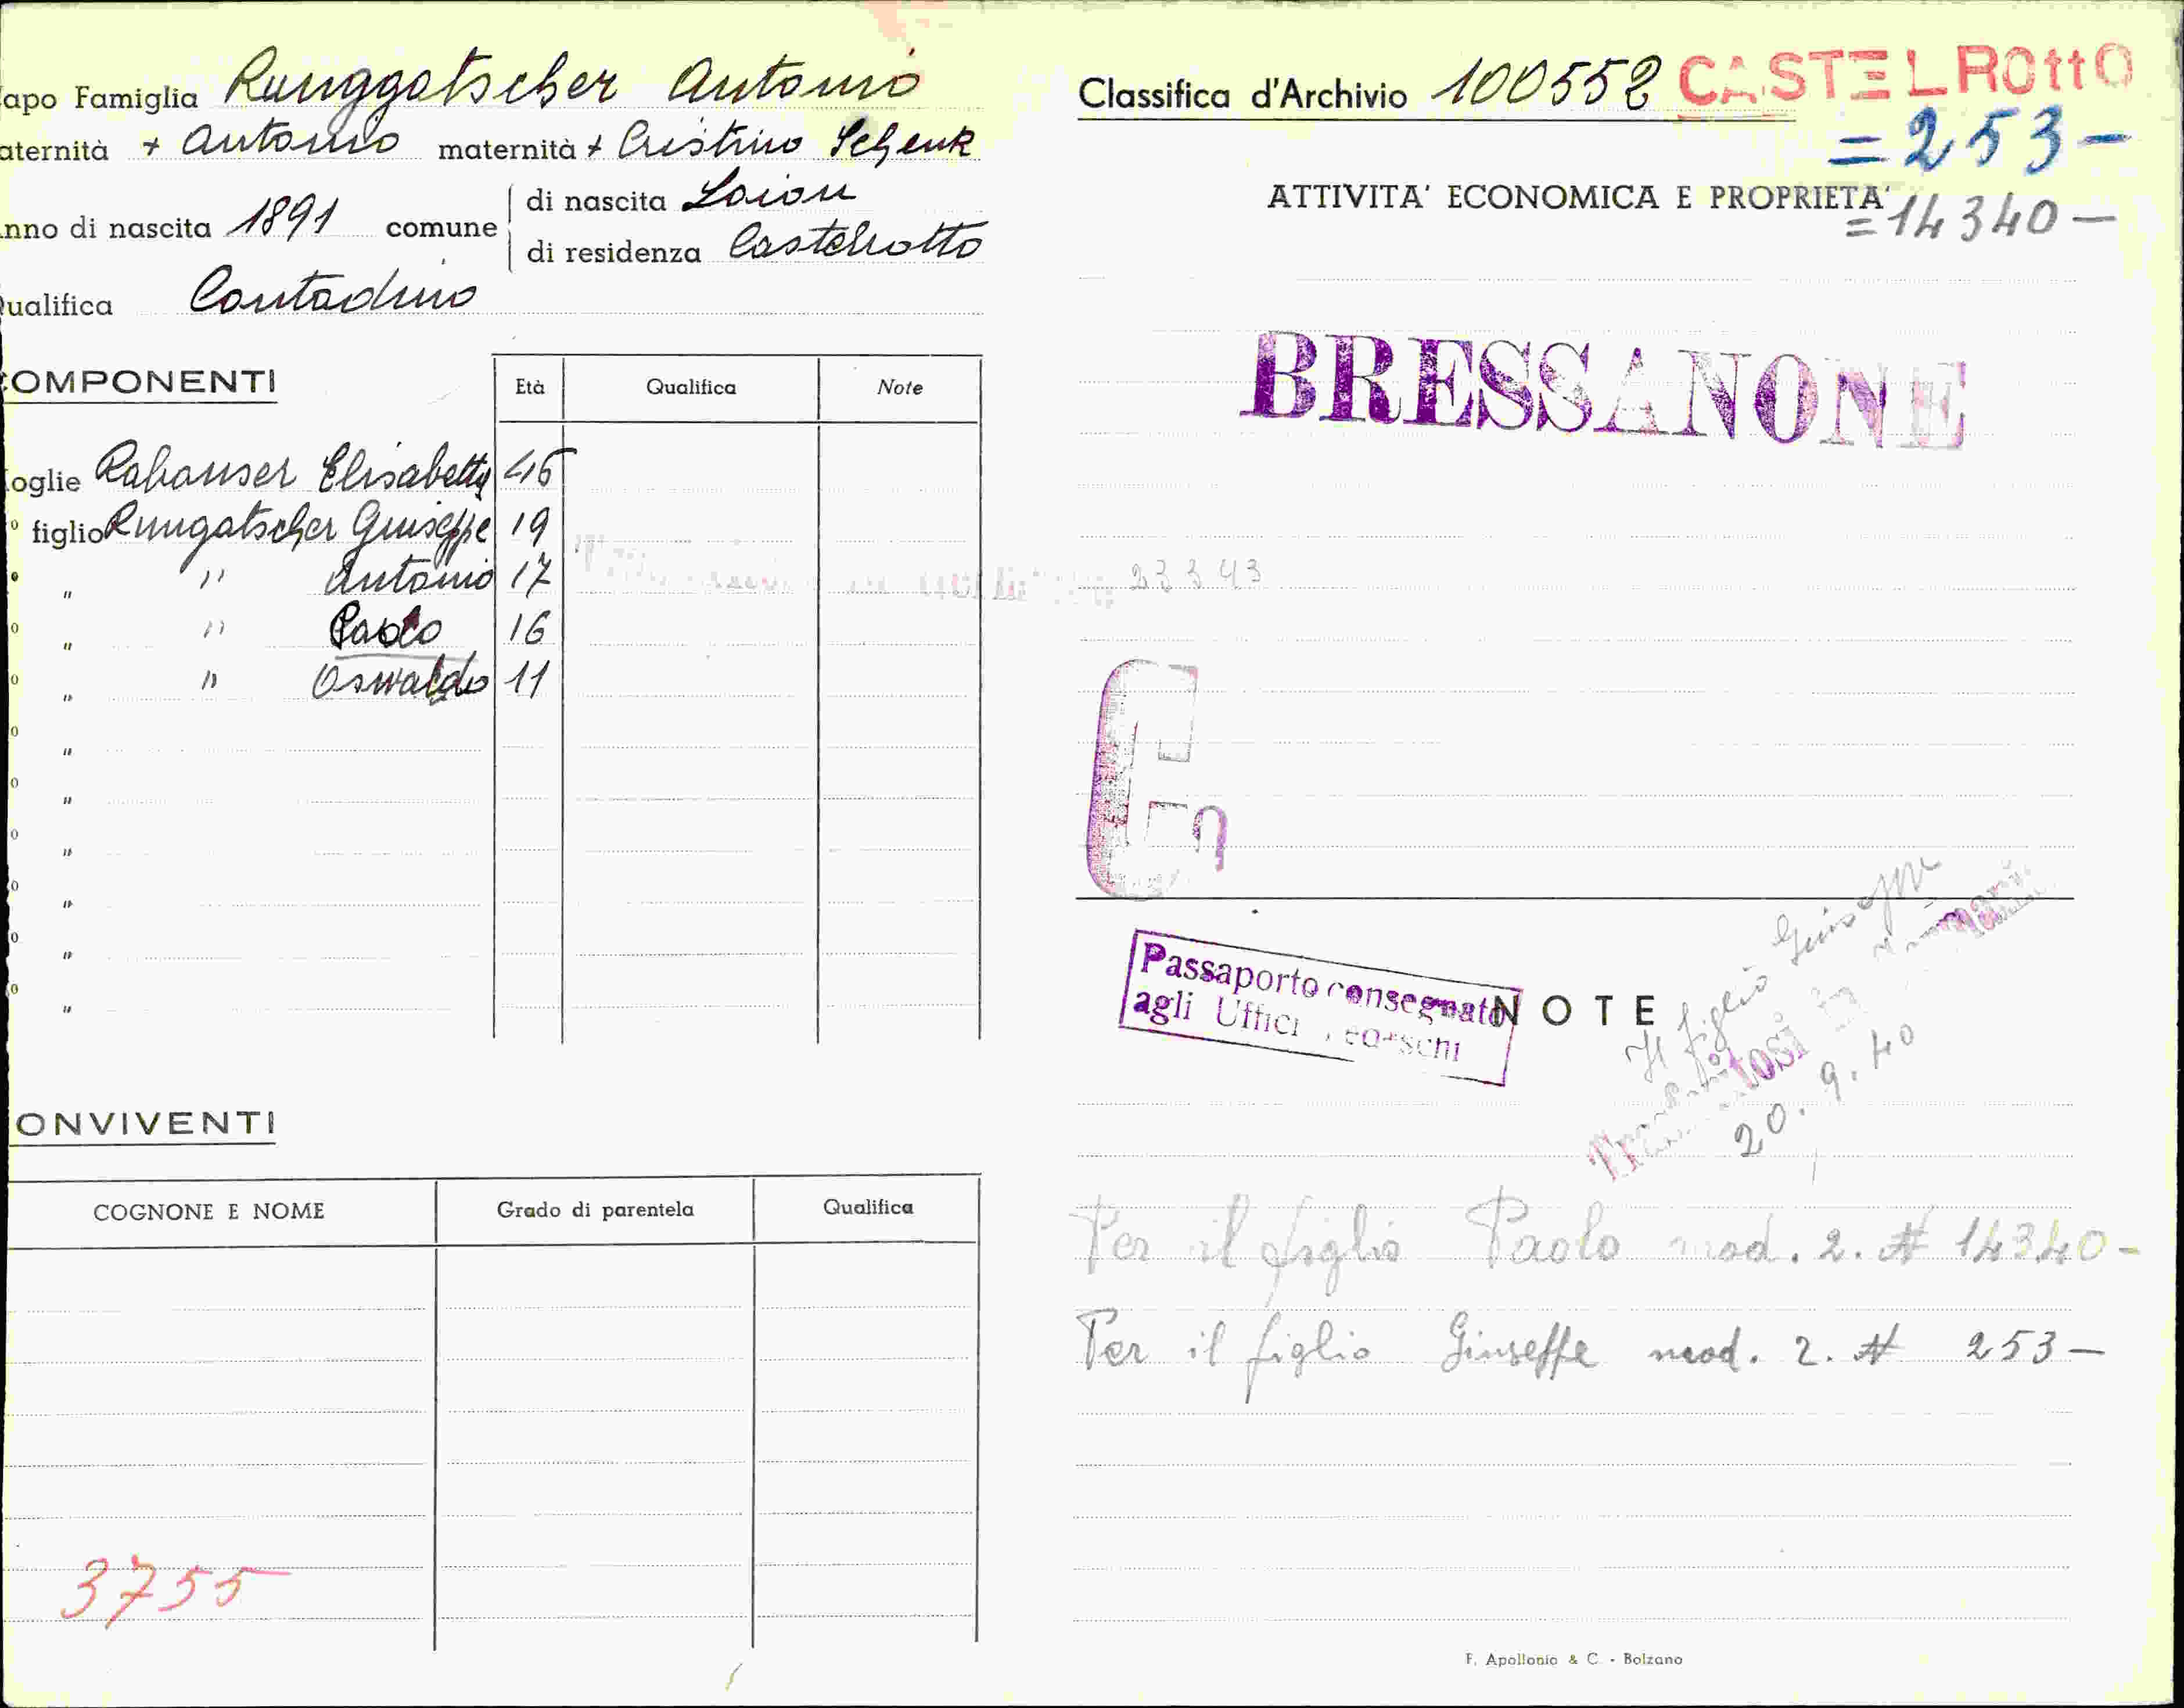 apo Famiglia Runggatscher Antonio
aternità + Antonio maternità + Cristina Schenk
nno di nascita 1891 comune di nascita Laion
di residenza Castelrotto
ualifica Contadino
OMPONENTI Età Qualifica Note
oglie Rabanser Elisabetta 45
° figlio Rungatscher Giuseppe 19
" " Antonio 17
° " " Paolo 16
° " " Oswaldo 11
° "
° "
° "
° "
° "
° "
ONVIVENTI
COGNONE E NOME Grado di parentela Qualifica
3755
Classifica d'Archivio 100552 CASTELROttO
= 253 -
ATTIVITA' ECONOMICA E PROPRIETA'
= 14340 -
BRESSANONE
23343
Passaporto consegnato
agli Uffici
NOTE
Il figlio Giuseppe
20.9.40
Per il figlio Paolo mod. 2. # 14340 -
Per il figlio Giuseppe mod. 2. # 253 -
F. Apollonio & C. - Bolzano